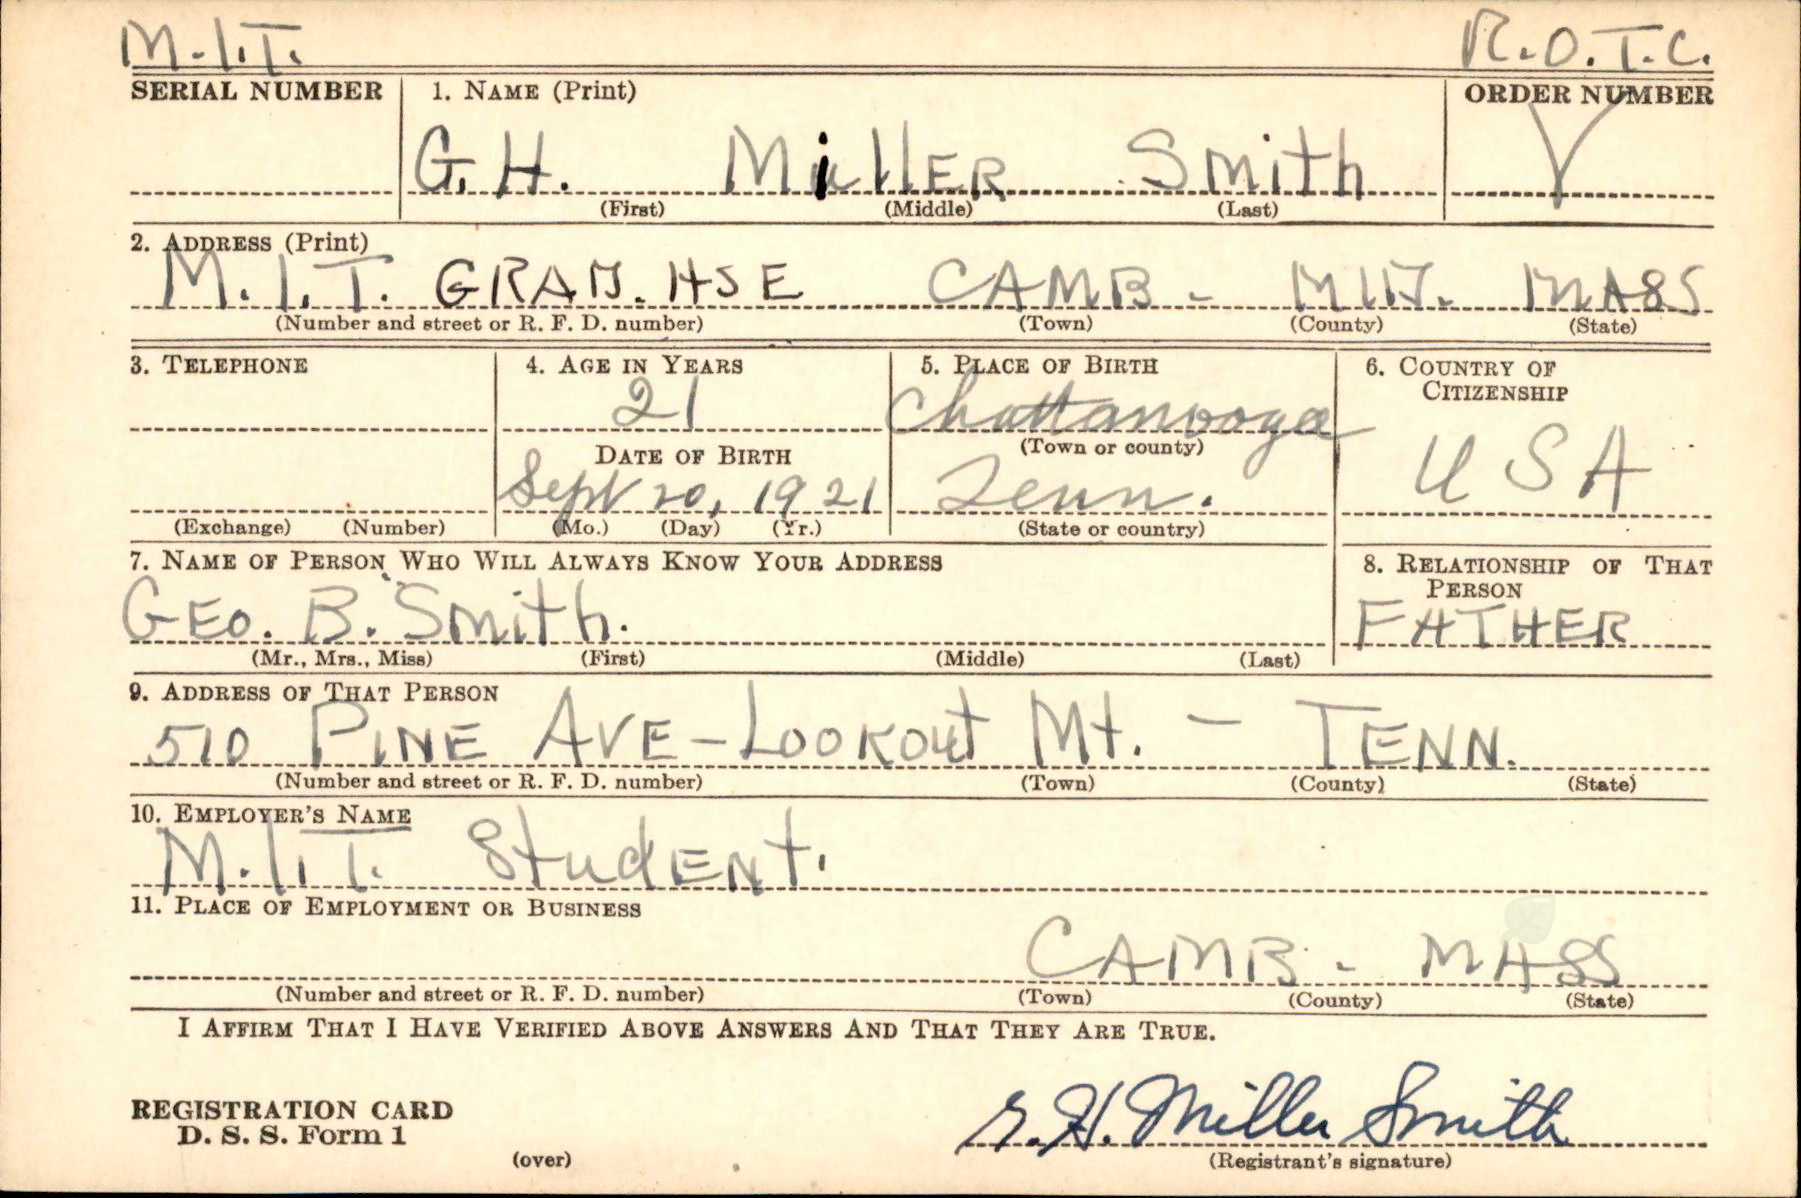 M.I.T. R.O.T.C.
SERIAL NUMBER 1. NAME (Print) ORDER NUMBER
G. H. Miller Smith
(First) (Middle) (Last)
2. ADDRESS (Print)
M.I.T. GRAD. HSE CAMB - MID. MASS
(Number and street or R. F. D. number) (Town) (County) (State)
3. TELEPHONE 4. AGE IN YEARS 5. PLACE OF BIRTH 6. COUNTRY OF CITIZENSHIP
21 Chattanooga
DATE OF BIRTH (Town or county) USA
Sept 20, 1921 Tenn.
(Exchange) (Number) (Mo.) (Day) (Yr.) (State or country)
7. NAME OF PERSON WHO WILL ALWAYS KNOW YOUR ADDRESS 8. RELATIONSHIP OF THAT PERSON
GEO. B. Smith. FATHER
(Mr., Mrs., Miss) (First) (Middle) (Last)
9. ADDRESS OF THAT PERSON
510 PINE AVE - LOOKOUT Mt. - TENN.
(Number and street or R. F. D. number) (Town) (County) (State)
10. EMPLOYER'S NAME
M.I.T. StudENt.
11. PLACE OF EMPLOYMENT OR BUSINESS
CAMB - MASS
(Number and street or R. F. D. number) (Town) (County) (State)
I AFFIRM THAT I HAVE VERIFIED ABOVE ANSWERS AND THAT THEY ARE TRUE.
REGISTRATION CARD
D. S. S. Form 1 G. H. Miller Smith
(over) (Registrant's signature)